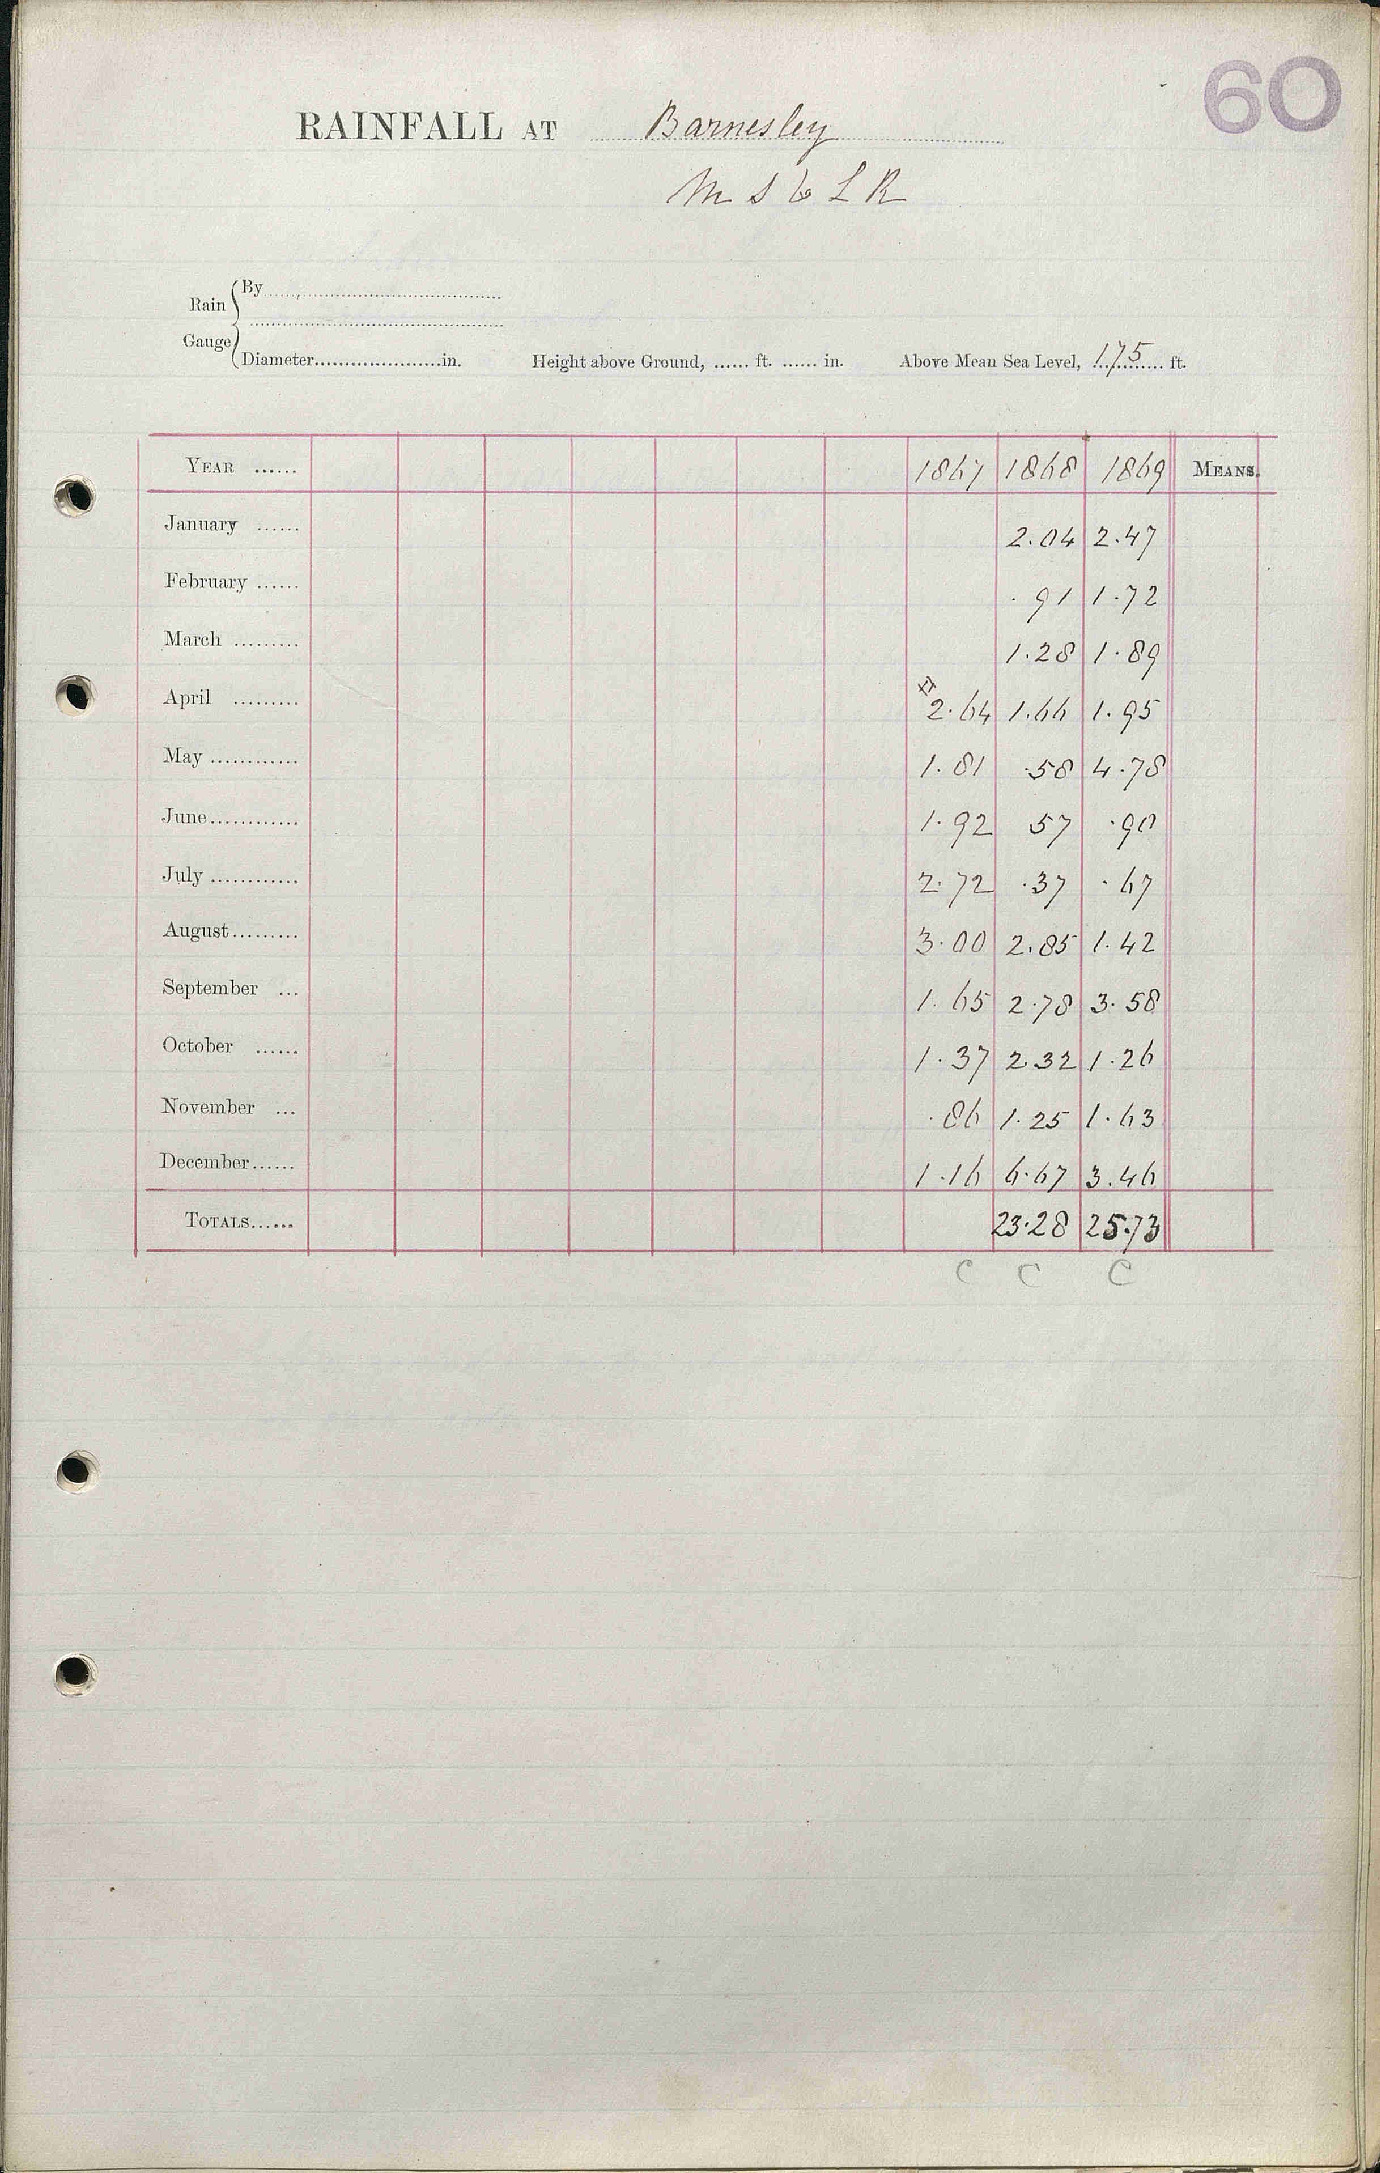 60
RAINFALL AT Barnesley
M S & L R
Rain Gauge
By
Diameter in. Height above Ground, ft. in. Above Mean Sea Level, 175 ft.
YEAR 1867 1868 1869 MEANS.
January 2.04 2.47
February .91 1.72
March 1.28 1.89
April 2.64 1.66 1.95
May 1.81 .58 4.78
June 1.92 57 .90
July 2.72 .37 .67
August 3.00 2.85 1.42
September 1.65 2.78 3.58
October 1.37 2.32 1.26
November .86 1.25 1.63
December 1.16 6.67 3.46
TOTALS 23.28 25.73
C C C